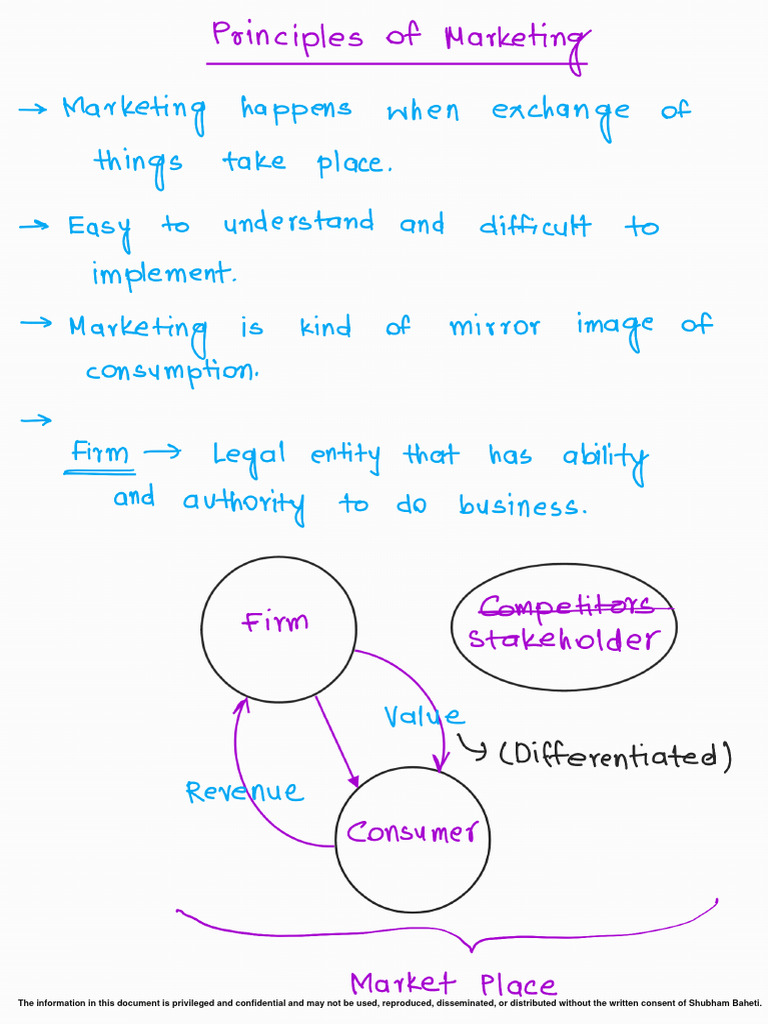 Principles of Marketing
→ Marketing happens when exchange of
things take place.
→ Easy to understand and difficult to
implement.
→ Marketing is kind of mirror image of
consumption.
→
Firm → Legal entity that has ability
and authority to do business.
Firm
Competitors
Stakeholder
Value
(Differentiated)
Revenue
Consumer
Market Place
The information in this document is privileged and confidential and may not be used, reproduced, disseminated, or distributed without the written consent of Shubham Baheti.